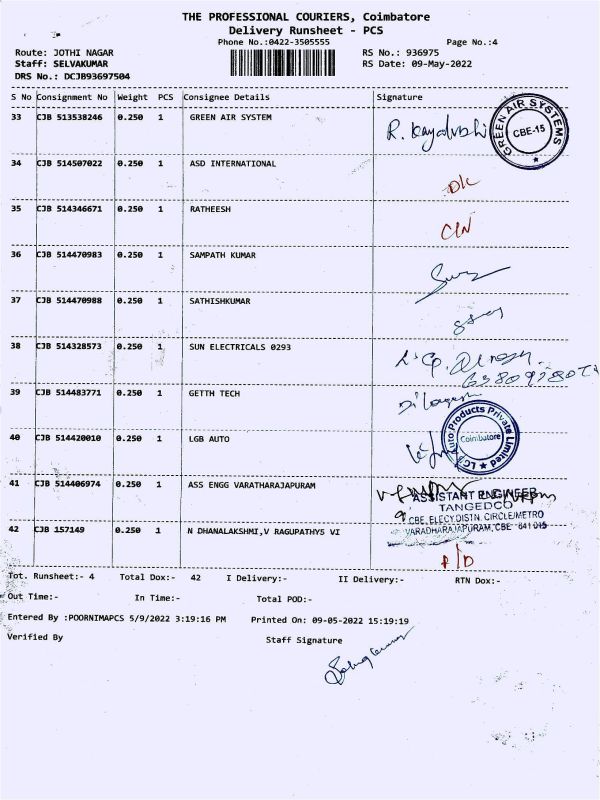 THE PROFESSIONAL COURIERS, Coimbatore
Delivery Runsheet - PCS
Phone No.:0422-3505555 Page No.:4
Route: JOTHI NAGAR RS No.: 936975
Staff: SELVAKUMAR RS Date: 09-May-2022
DRS No.: DCJB93697504
S No Consignment No Weight PCS Consignee Details Signature
33 CJB 513538246 0.250 1 GREEN AIR SYSTEM
GREEN AIR SYSTEMS
CBE-15
34 CJB 514507022 0.250 1 ASD INTERNATIONAL
35 CJB 514346671 0.250 1 RATHEESH
36 CJB 514470983 0.250 1 SAMPATH KUMAR
37 CJB 514470988 0.250 1 SATHISHKUMAR
38 CJB 514328573 0.250 1 SUN ELECTRICALS 0293
39 CJB 514483771 0.250 1 GETTH TECH
40 CJB 514420010 0.250 1 LGB AUTO
LGB Auto Products Private Limited
Coimbatore
41 CJB 514406974 0.250 1 ASS ENGG VARATHARAJAPURAM
ASSISTANT ENGINEER
TANGEDCO
CBE. ELECY DISTN. CIRCLE/METRO
VARADHARAJAPURAM, CBE - 641 015
42 CJB 157149 0.250 1 N DHANALAKSHMI,V RAGUPATHY5 VI
Tot. Runsheet:- 4 Total Dox:- 42 I Delivery:- II Delivery:- RTN Dox:-
Out Time:- In Time:- Total POD:-
Entered By :POORNIMAPCS 5/9/2022 3:19:16 PM Printed On: 09-05-2022 15:19:19
Verified By Staff Signature